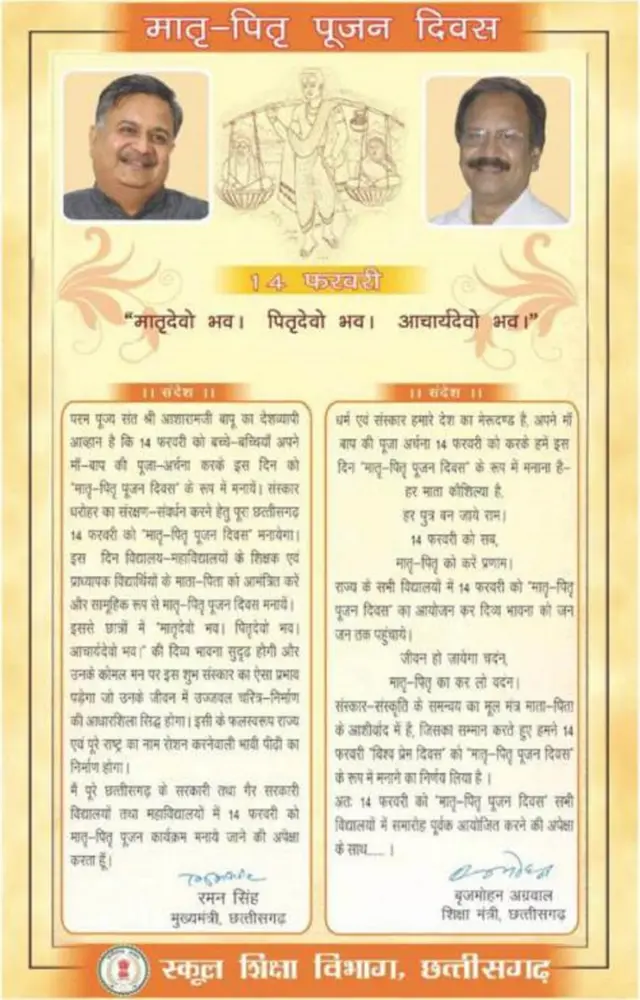 मातृ-पितृ पूजन दिवस
14 फरवरी
“मातृदेवो भव। पितृदेवो भव। आचार्यदेवो भव।”
।। संदेश ।।
परम पूज्य संत श्री आशारामजी बापू का देशव्यापी
आव्हान है कि 14 फरवरी को बच्चे-बच्चियाँ अपने
माँ-बाप की पूजा-अर्चना करके इस दिन को
“मातृ-पितृ पूजन दिवस” के रूप में मनायें। संस्कार
धरोहर का संरक्षण-संवर्धन करने हेतु पूरा छत्तीसगढ़
14 फरवरी को “मातृ-पितृ पूजन दिवस” मनायेगा।
इस दिन विद्यालय-महाविद्यालयों के शिक्षक एवं
प्राध्यापक विद्यार्थियों के माता-पिता को आमंत्रित करे
और सामूहिक रूप से मातृ-पितृ पूजन दिवस मनायें।
इससे छात्रों में “मातृदेवो भव। पितृदेवो भव।
आचार्यदेवो भव।” की दिव्य भावना सुदृढ़ होगी और
उनके कोमल मन पर इस शुभ संस्कार का ऐसा प्रभाव
पड़ेगा जो उनके जीवन में उज्जवल चरित्र-निर्माण
की आधारशिला सिद्ध होगा। इसी के फलस्वरूप राज्य
एवं पूरे राष्ट्र का नाम रोशन करनेवाली भावी पीढ़ी का
निर्माण होगा।
मैं पूरे छत्तीसगढ़ के सरकारी तथा गैर सरकारी
विद्यालयों तथा महाविद्यालयों में 14 फरवरी को
मातृ-पितृ पूजन कार्यक्रम मनाये जाने की अपेक्षा
करता हूँ।
रमन सिंह
मुख्यमंत्री, छत्तीसगढ़
।। संदेश ।।
धर्म एवं संस्कार हमारे देश का मेरूदण्ड है, अपने माँ
बाप की पूजा अर्चना 14 फरवरी को करके हमें इस
दिन “मातृ-पितृ पूजन दिवस” के रूप में मनाना है-
हर माता कौशिल्या है,
हर पुत्र बन जाये राम।
14 फरवरी को सब,
मातृ-पितृ को करें प्रणाम।
राज्य के सभी विद्यालयों में 14 फरवरी को “मातृ-पितृ
पूजन दिवस” का आयोजन कर दिव्य भावना को जन
जन तक पहुंचाये।
जीवन हो जायेगा चदंन,
मातृ-पितृ का कर लो वदंन।
संस्कार-संस्कृति के समन्वय का मूल मंत्र माता-पिता
के आशीवाद में है, जिसका सम्मान करते हुए हमने 14
फरवरी “विश्व प्रेम दिवस” को “मातृ-पितृ पूजन दिवस”
के रूप में मनाने का निर्णय लिया है ।
अतः 14 फरवरी को “मातृ-पितृ पूजन दिवस’ सभी
विद्यालयों में समारोह पूर्वक आयोजित करने की अपेक्षा
के साथ..... ।
बृजमोहन अग्रवाल
शिक्षा मंत्री, छत्तीसगढ़
स्कूल शिक्षा विभाग, छत्तीसगढ़